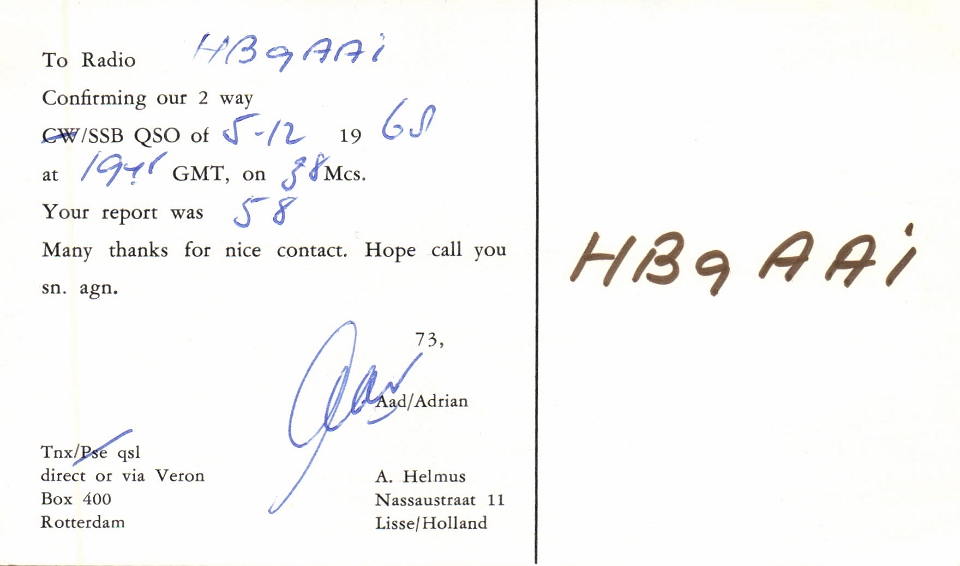 To Radio HB9AAi
Confirming our 2 way
CW/SSB QSO of 5-12 19 68
at GMT, on 38 Mcs.
Your report was 58
Many thanks for nice contact. Hope call you
sn. agn.
73,
Aad/Adrian
Tnx/Pse qsl
direct or via Veron
Box 400
Rotterdam
A. Helmus
Nassaustraat 11
Lisse/Holland
HB9AAi